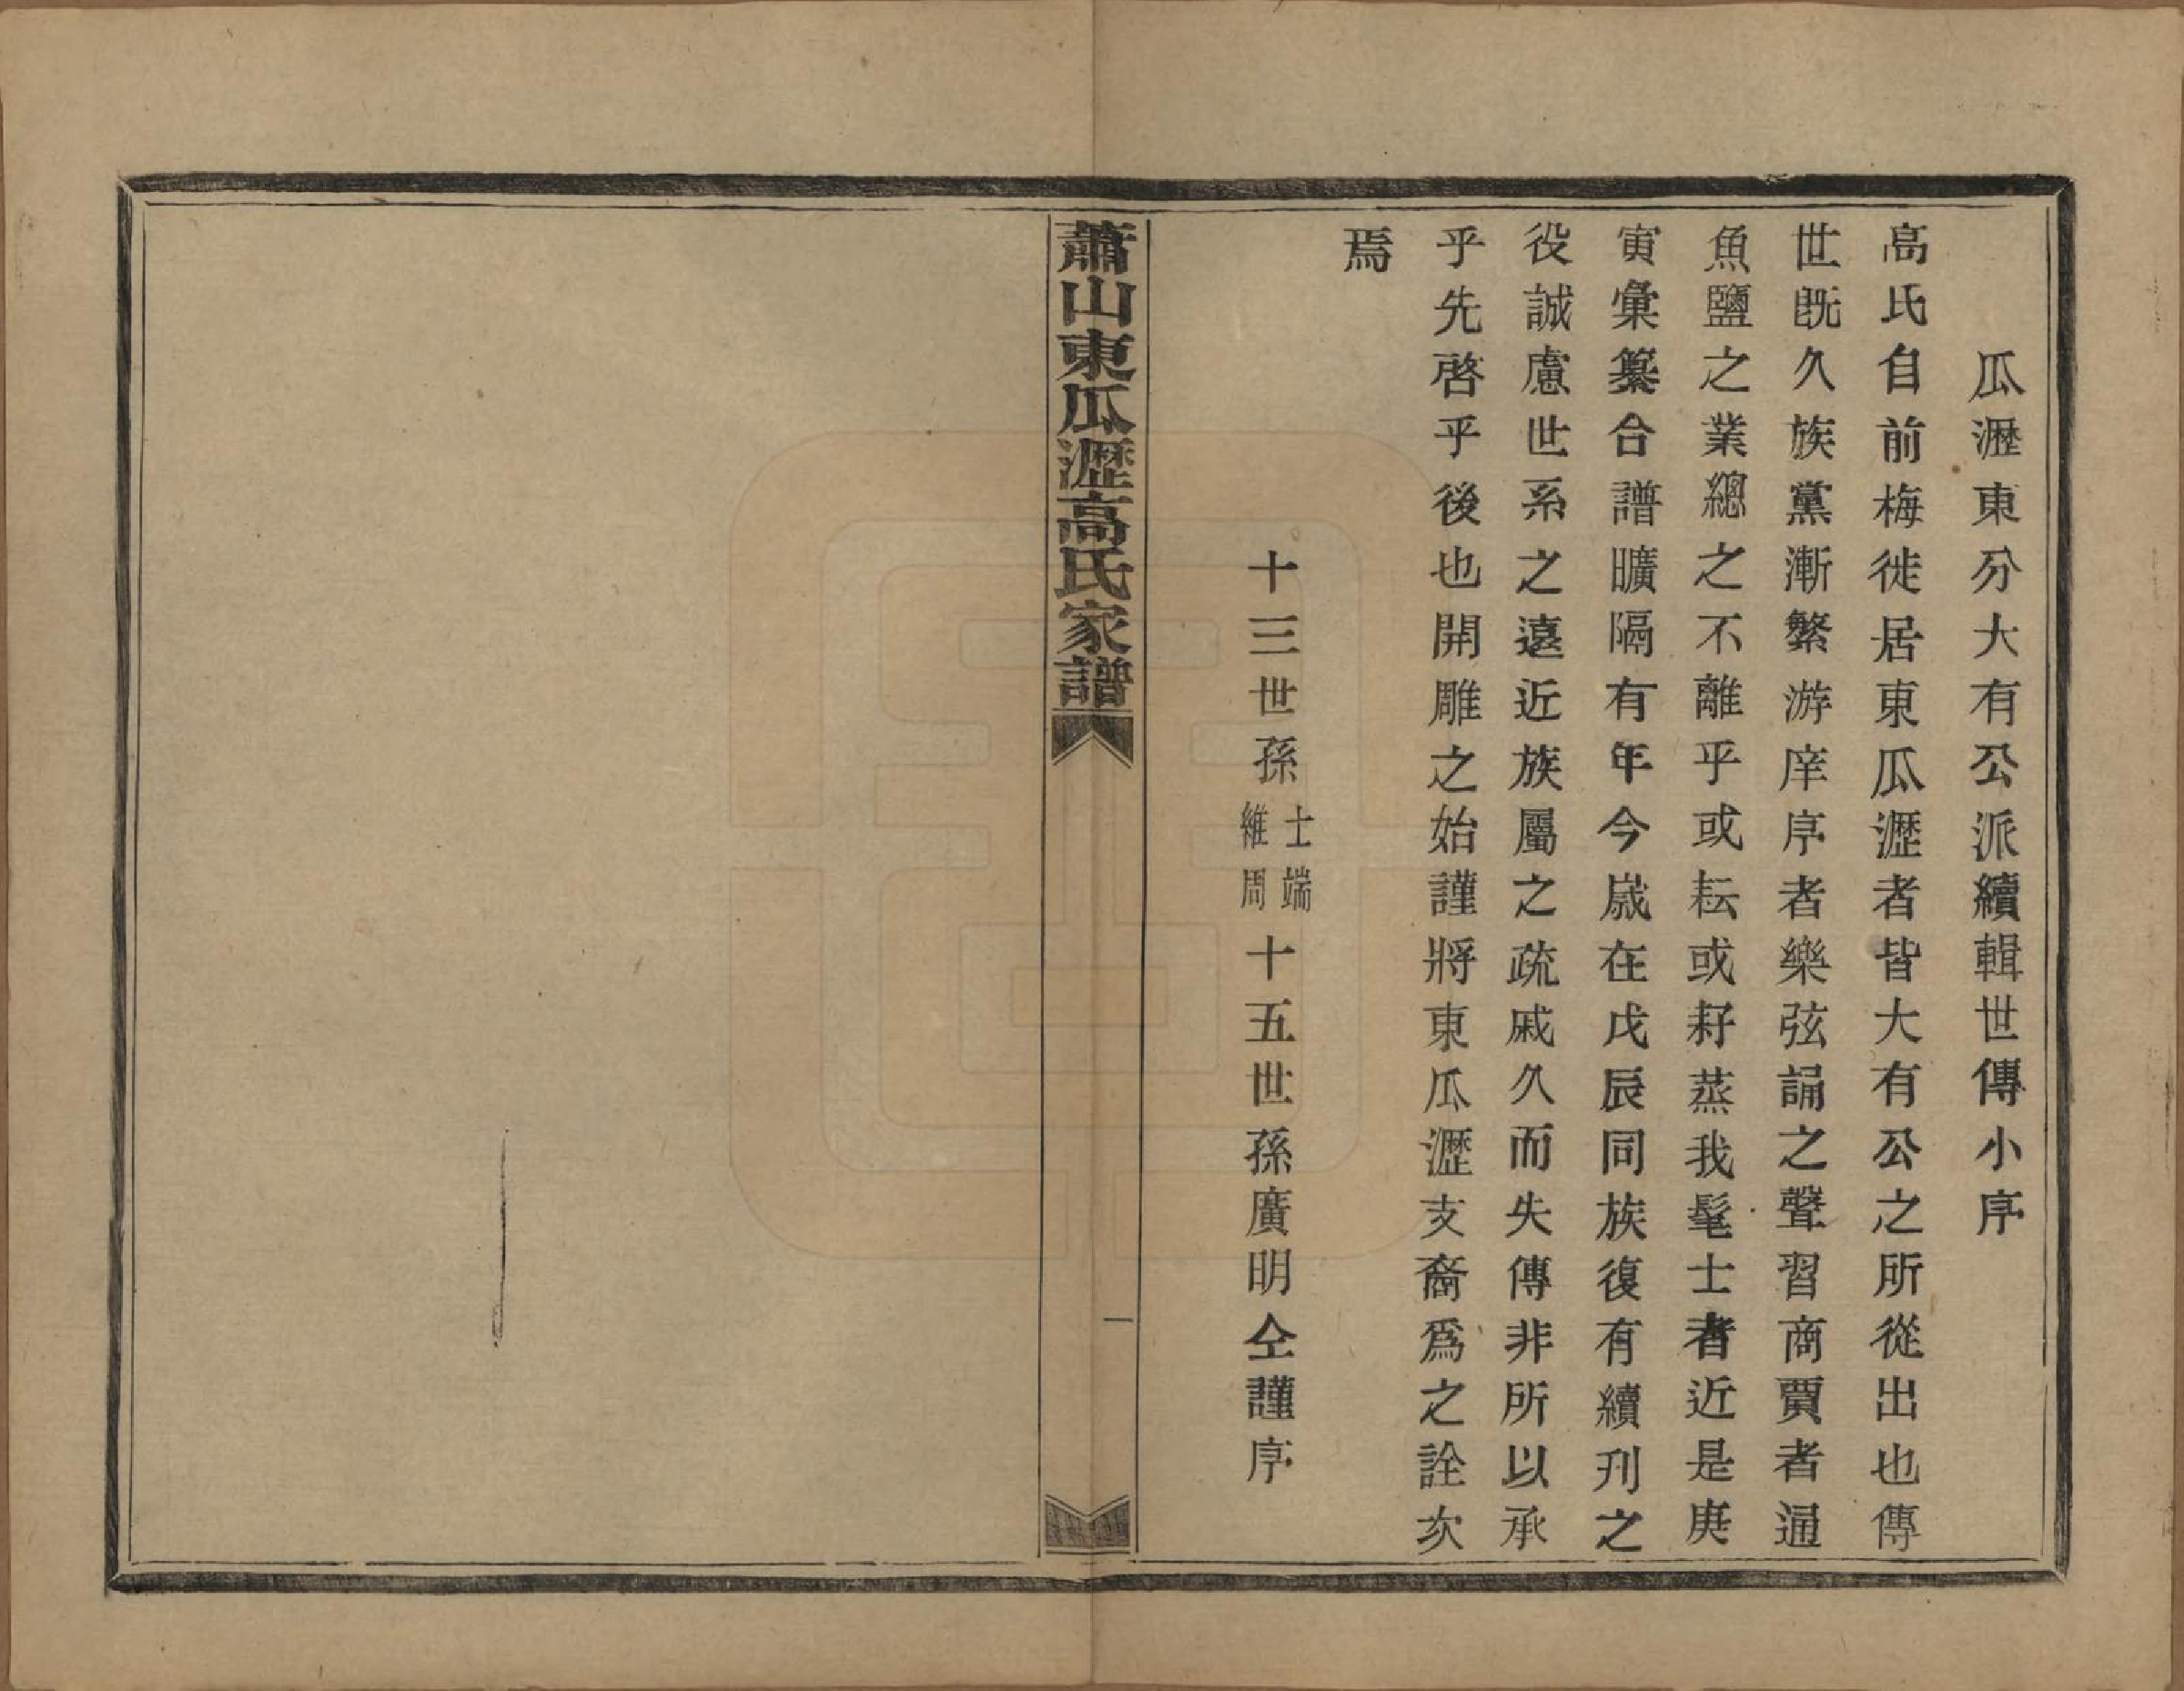 瓜瀝東分大有公派續輯世傳小序
高氏自前梅徙居東瓜瀝者皆大有公之所從出也傳
世旣久族黨漸繁游庠序者樂弦誦之聲習商賈者通
魚鹽之業總之不離乎或耘或耔蒸我髦士者近是庚
寅彙纂合譜曠隔有年今歲在戊辰同族復有續刊之
役誠慮世系之遠近族屬之疏戚久而失傳非所以承
乎先啓乎後也開雕之始謹將東瓜瀝支裔爲之詮次
焉
十三世孫士端維周十五世孫廣明仝謹序
蕭山東瓜瀝高氏家譜
一